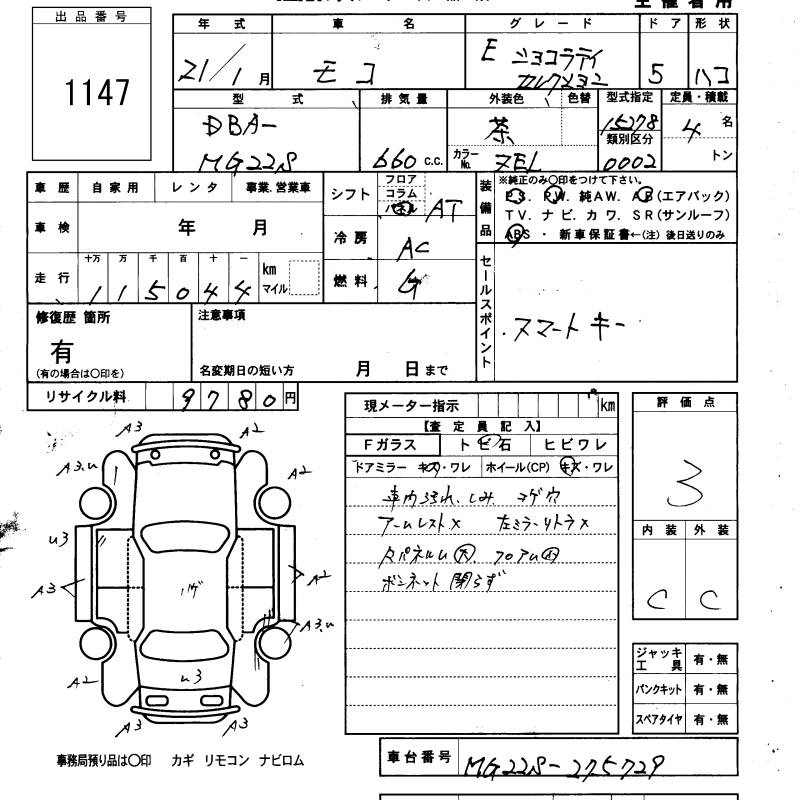 出品番号
1147
年式 車名 グレード ドア 形状
21/1月 モコ E ショコラティ
カレクション 5 ハコ
型式 排気量 外装色 色替 型式指定 定員・積載
DBA- 茶 15278 4名
類別区分
MG22S 660 c.c. カラーNo. ZEL 0002 トン
車歴 自家用 レンタ 事業.営業車
車検 年 月
走行 十万 万 千 百 十 一
115044 km マイル
シフト フロア コラム パネル AT
冷房 AC
燃料 G
装備品 ※純正のみ○印をつけて下さい。
P.S. P.W. 純AW. A.B(エアバッグ)
TV. ナビ. カワ. SR(サンルーフ)
ABS ・ 新車保証書←(注) 後日送りのみ
セールスポイント
スマートキー
修復歴 箇所
有
(有の場合は○印を)
注意事項
名変期日の短い方 月 日まで
リサイクル料 9780円
現メーター指示 km
【査定員記入】
Fガラス トビ石 ヒビワレ
ドアミラー キズ・ワレ ホイール(CP) キズ・ワレ
車内汚れ、しみ コゲ穴
アームレスト× 左ミラーリトラ×
ボンネット 閉らず
評価点
3
内装 外装
C C
A3 A2
A3.u A2
u3
A3 A2
コゲ
A3.u
A2 u3
A3 A3
ジャッキ工具 有・無
パンクキット 有・無
スペアタイヤ 有・無
事務局預り品は○印 カギ リモコン ナビロム
車台番号 MG22S-275729